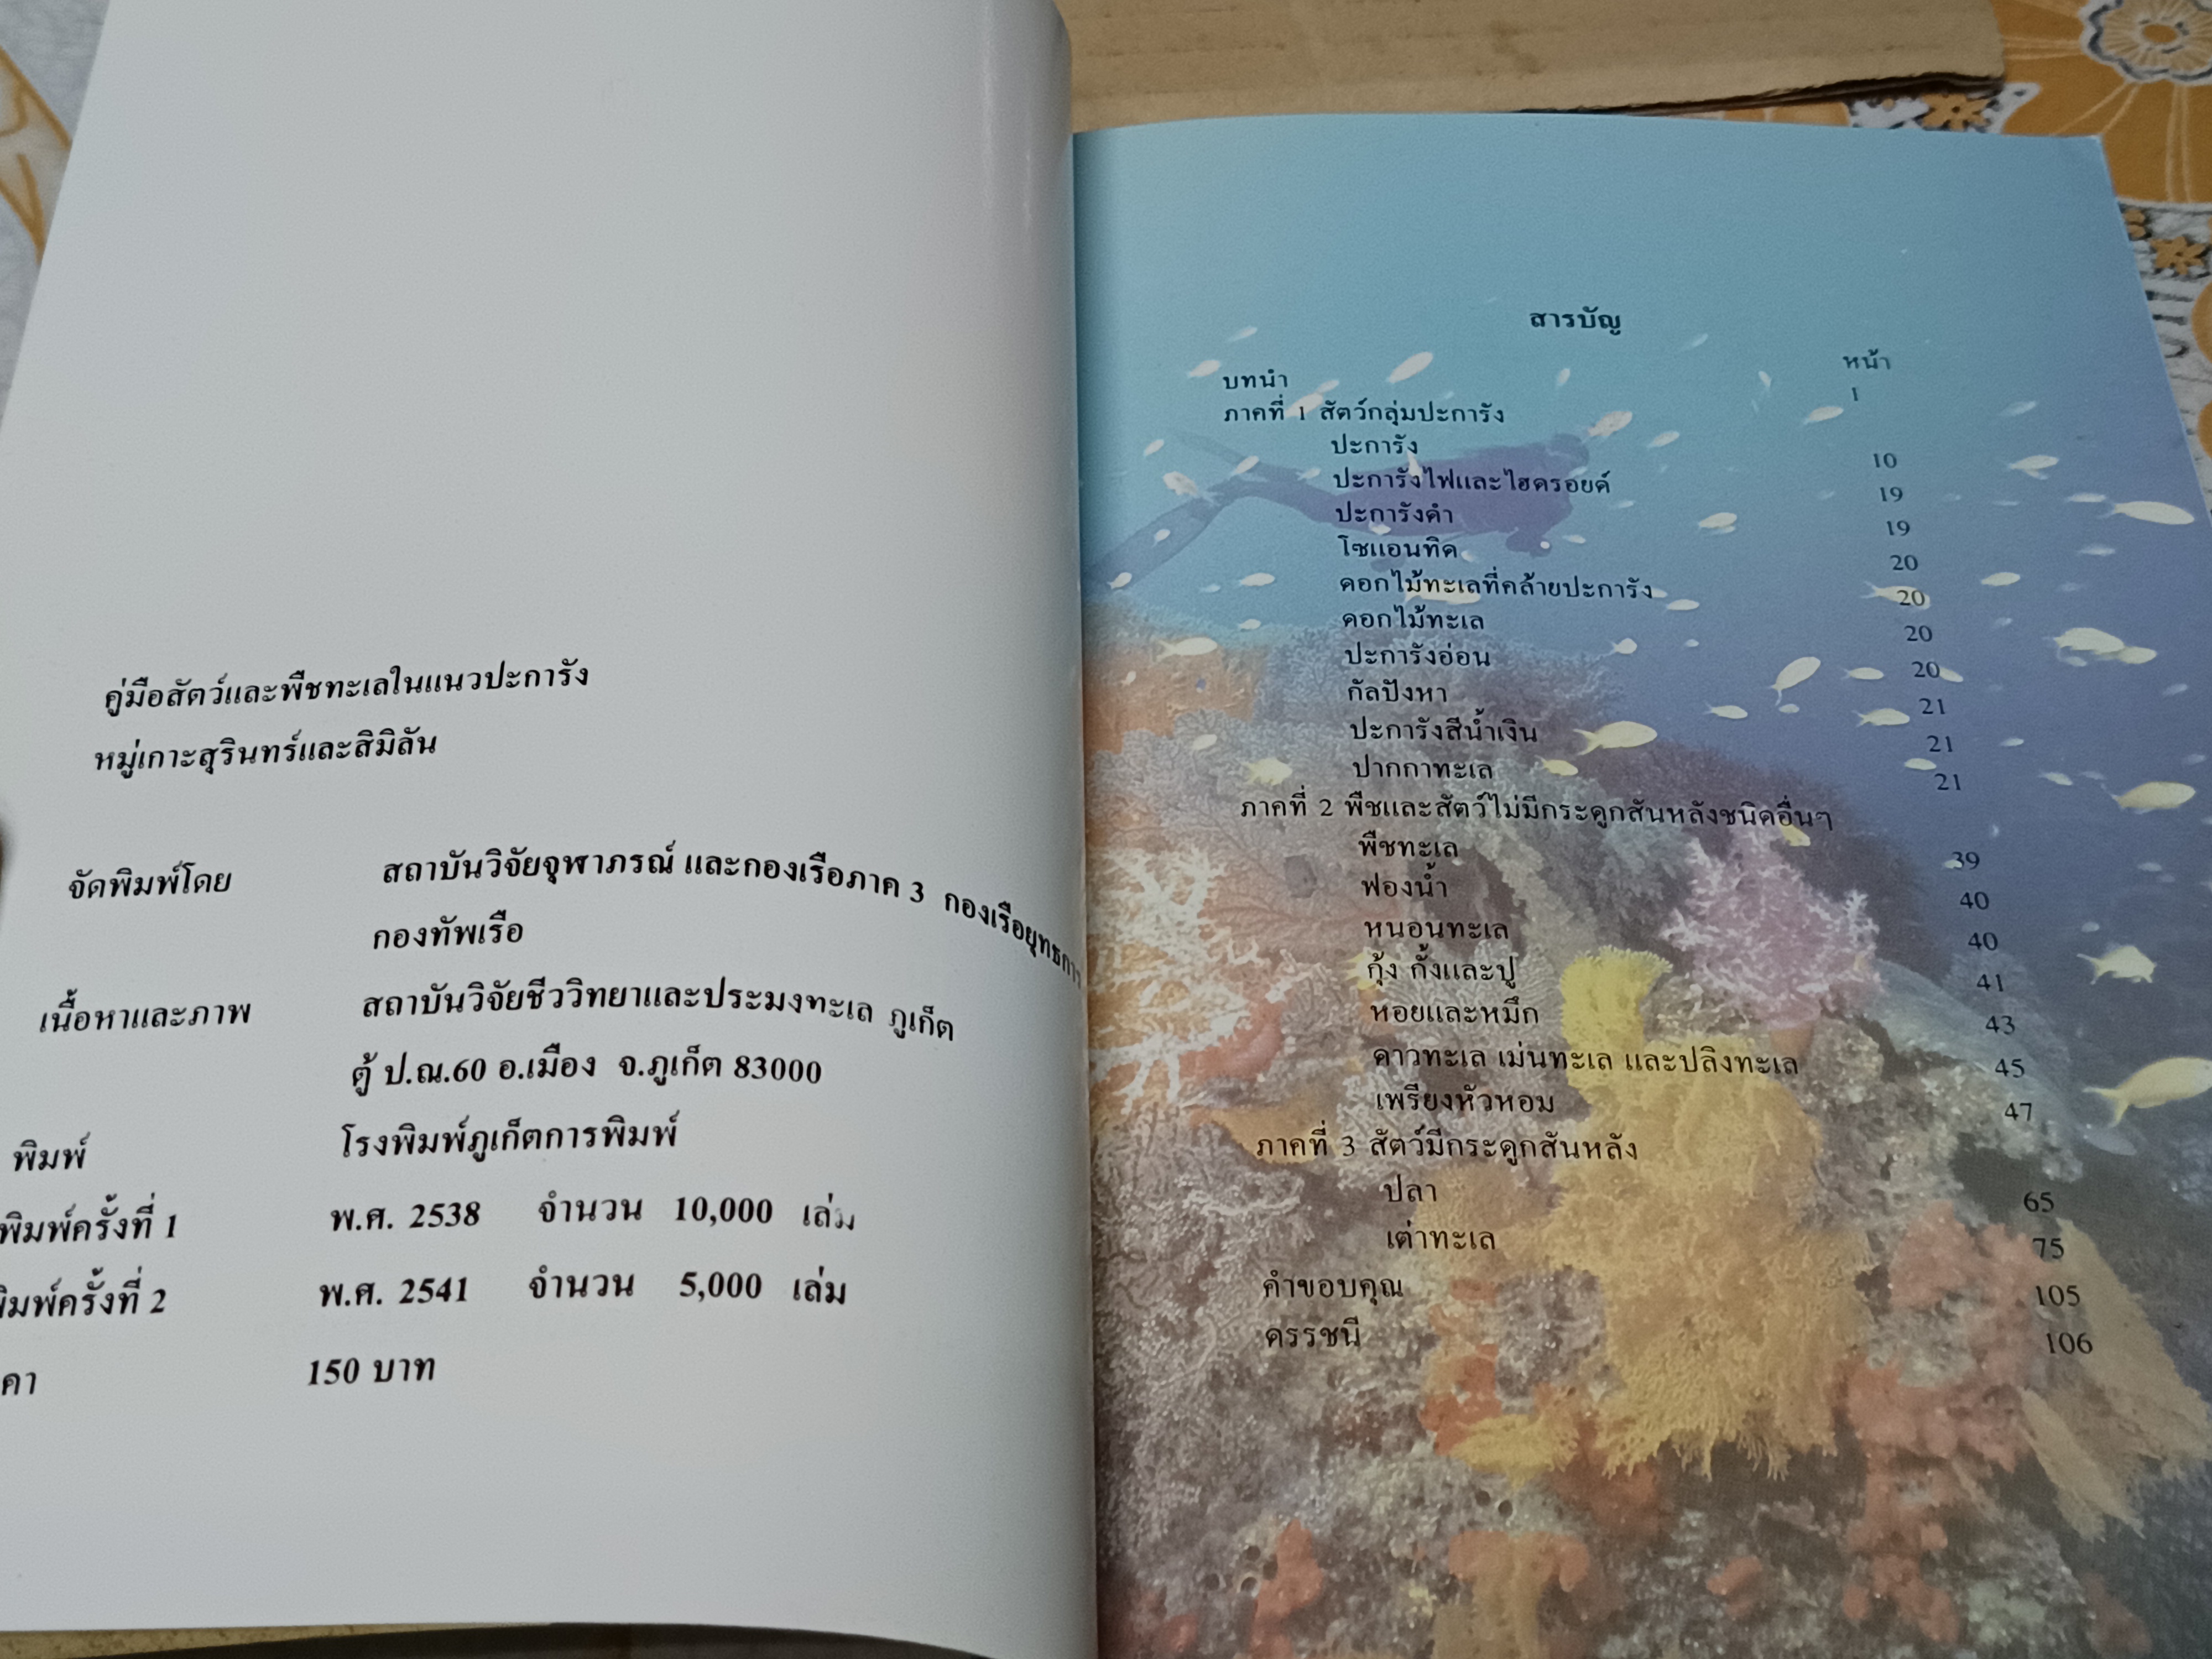 คู่มือสัตว์และพืชทะเลในแนวปะการัง
หมู่เกาะสุรินทร์และสิมิลัน
จัดพิมพ์โดย สถาบันวิจัยจุฬาภรณ์ และกองเรือภาค 3 กองเรือยุทธการ
กองทัพเรือ
เนื้อหาและภาพ สถาบันวิจัยชีววิทยาและประมงทะเล ภูเก็ต
ตู้ ป.ณ.60 อ.เมือง จ.ภูเก็ต 83000
พิมพ์ โรงพิมพ์ภูเก็ตการพิมพ์
พิมพ์ครั้งที่ 1 พ.ศ. 2538 จำนวน 10,000 เล่ม
พิมพ์ครั้งที่ 2 พ.ศ. 2541 จำนวน 5,000 เล่ม
คา 150 บาท
สารบัญ
หน้า
บทนำ 1
ภาคที่ 1 สัตว์กลุ่มปะการัง
ปะการัง 10
ปะการังไฟและไฮดรอยด์ 19
ปะการังดำ 19
โซแอนทิด 20
ดอกไม้ทะเลที่คล้ายปะการัง 20
ดอกไม้ทะเล 20
ปะการังอ่อน 20
กัลปังหา 21
ปะการังสีน้ำเงิน 21
ปากกาทะเล 21
ภาคที่ 2 พืชและสัตว์ไม่มีกระดูกสันหลังชนิดอื่นๆ
พืชทะเล 39
ฟองน้ำ 40
หนอนทะเล 40
กุ้ง กั้งและปู 41
หอยและหมึก 43
ดาวทะเล เม่นทะเล และปลิงทะเล 45
เพรียงหัวหอม 47
ภาคที่ 3 สัตว์มีกระดูกสันหลัง
ปลา 65
เต่าทะเล 75
คำขอบคุณ 105
ดรรชนี 106